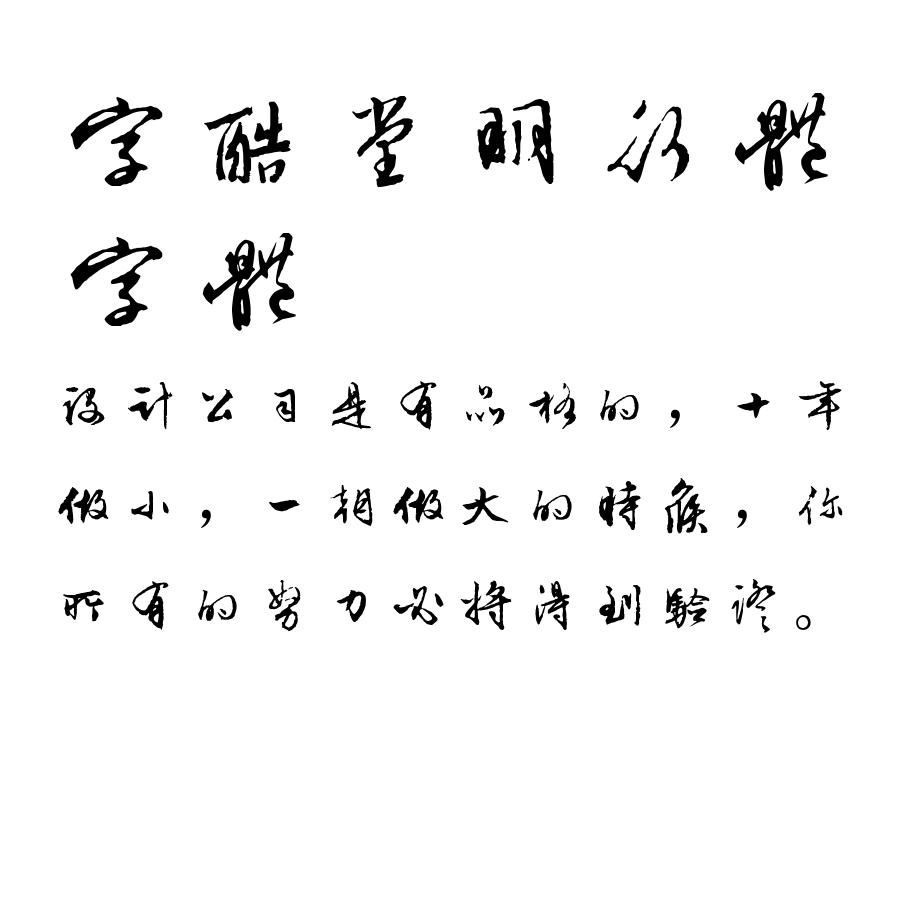 字酷堂明行體
字體
设计公司是有品格的，十年
做小，一朝做大的時候，你
所有的努力必将得到驗證。